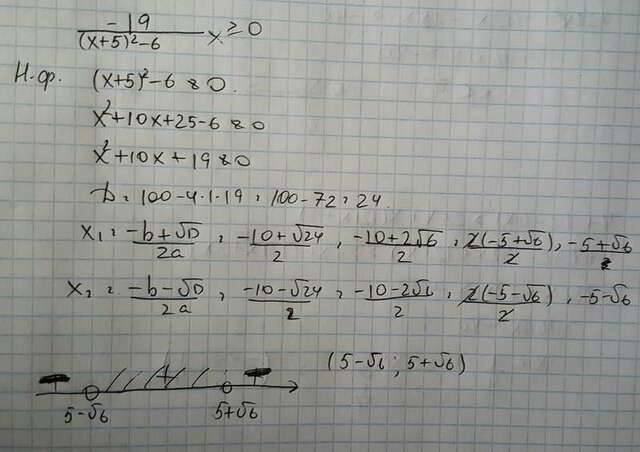 -19/((x+5)²-6) x ≥ 0
Н.ф. (x+5)²-6 = 0.
x²+10x+25-6 = 0
x²+10x+19 = 0
D = 100-4·1·19 = 100-72 = 24
x₁ = (-b+√D)/2a = (-10+√24)/2 = (-10+2√6)/2 = 2(-5+√6)/2 = -5+√6
x₂ = (-b-√D)/2a = (-10-√24)/2 = (-10-2√6)/2 = 2(-5-√6)/2 = -5-√6
(5-√6; 5+√6)
5-√6 5+√6